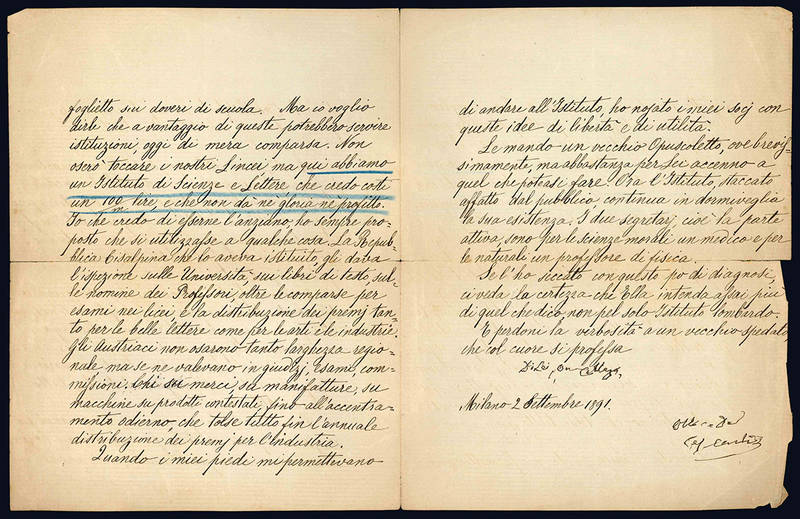 foglietto sui doveri di scuola. Ma io voglio
dirle che a vantaggio di queste potrebbero servire
istituzioni, oggi di mera comparsa. Non
oserò toccare i nostri Lincei, ma qui abbiamo
un Istituto di Scienze e Lettere, che credo costi
un 100 m lire, e che non dà nè gloria nè profitto.
Io che credo di esserne l'anziano, ho sempre pro=
posto che si utilizzasse a qualche cosa. La Repub=
blica Cisalpina che lo aveva istituito, gli dava
l'ispezione sulle Università, sui libri di testo, sul=
le nomine dei Professori, oltre le comparse per
esami nei licei, e la distribuzione dei premj tan=
to per le belle lettere come per le arti e le industrie.
Gli Austriaci non osarono tanto larghezza regio=
nale ma se ne valevano in giudizj, esami, com=
missioni. Chi su merci, su manifatture, su
macchine su prodotti contestati, fino all'accentra=
mento odierno, che tolse tutto fin l'annuale
distribuzione dei premj per l'Industria.
Quando i miei piedi mi permettevano
di andare all'Istituto, ho nojato i miei socj con
queste idee di libertà e di utilità.
Le mando un vecchio Opuscoletto, ove brevis=
simamente, ma abbastanza per Lei accenno a
quel che poteasi fare. Ora l'Istituto, staccato
affatto dal pubblico, continua in dormiveglia
la sua esistenza. I due segretarj, cioè la parte
attiva, sono per le scienze morali un medico e per
le naturali un professore di fisica.
Se l'ho seccato con questo po' di diagnosi,
ci veda la certezza che Ella intenda assai più
di quel che dico, non pel solo Istituto lombardo.
E perdoni la verbosità a un vecchio spedato,
che col cuore si professa
Di Lei, On.
Milano 2 Settembre 1891.